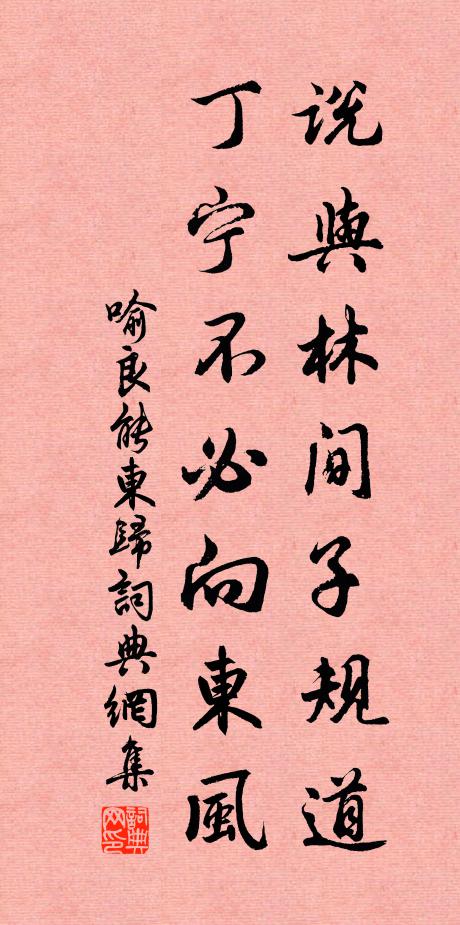 説與林間子規道
丁宁不必向東風
喻良能東歸詞典網集
詞典网印